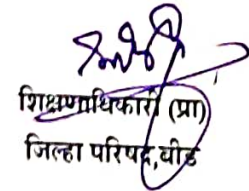 शिक्षणाधिकारी (प्रा)
जिल्हा परिषद,बीड